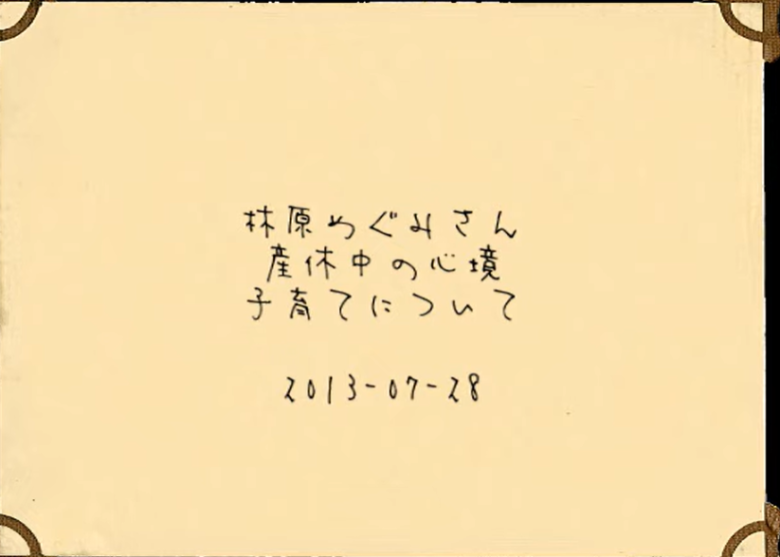 林原めぐみさん
産休中の心境
子育てについて
2013-07-28